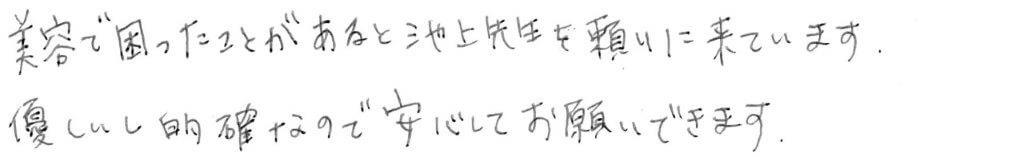 美容で困ったことがあると池上先生を頼りに来ています.
優しいし的確なので安心してお願いできます.